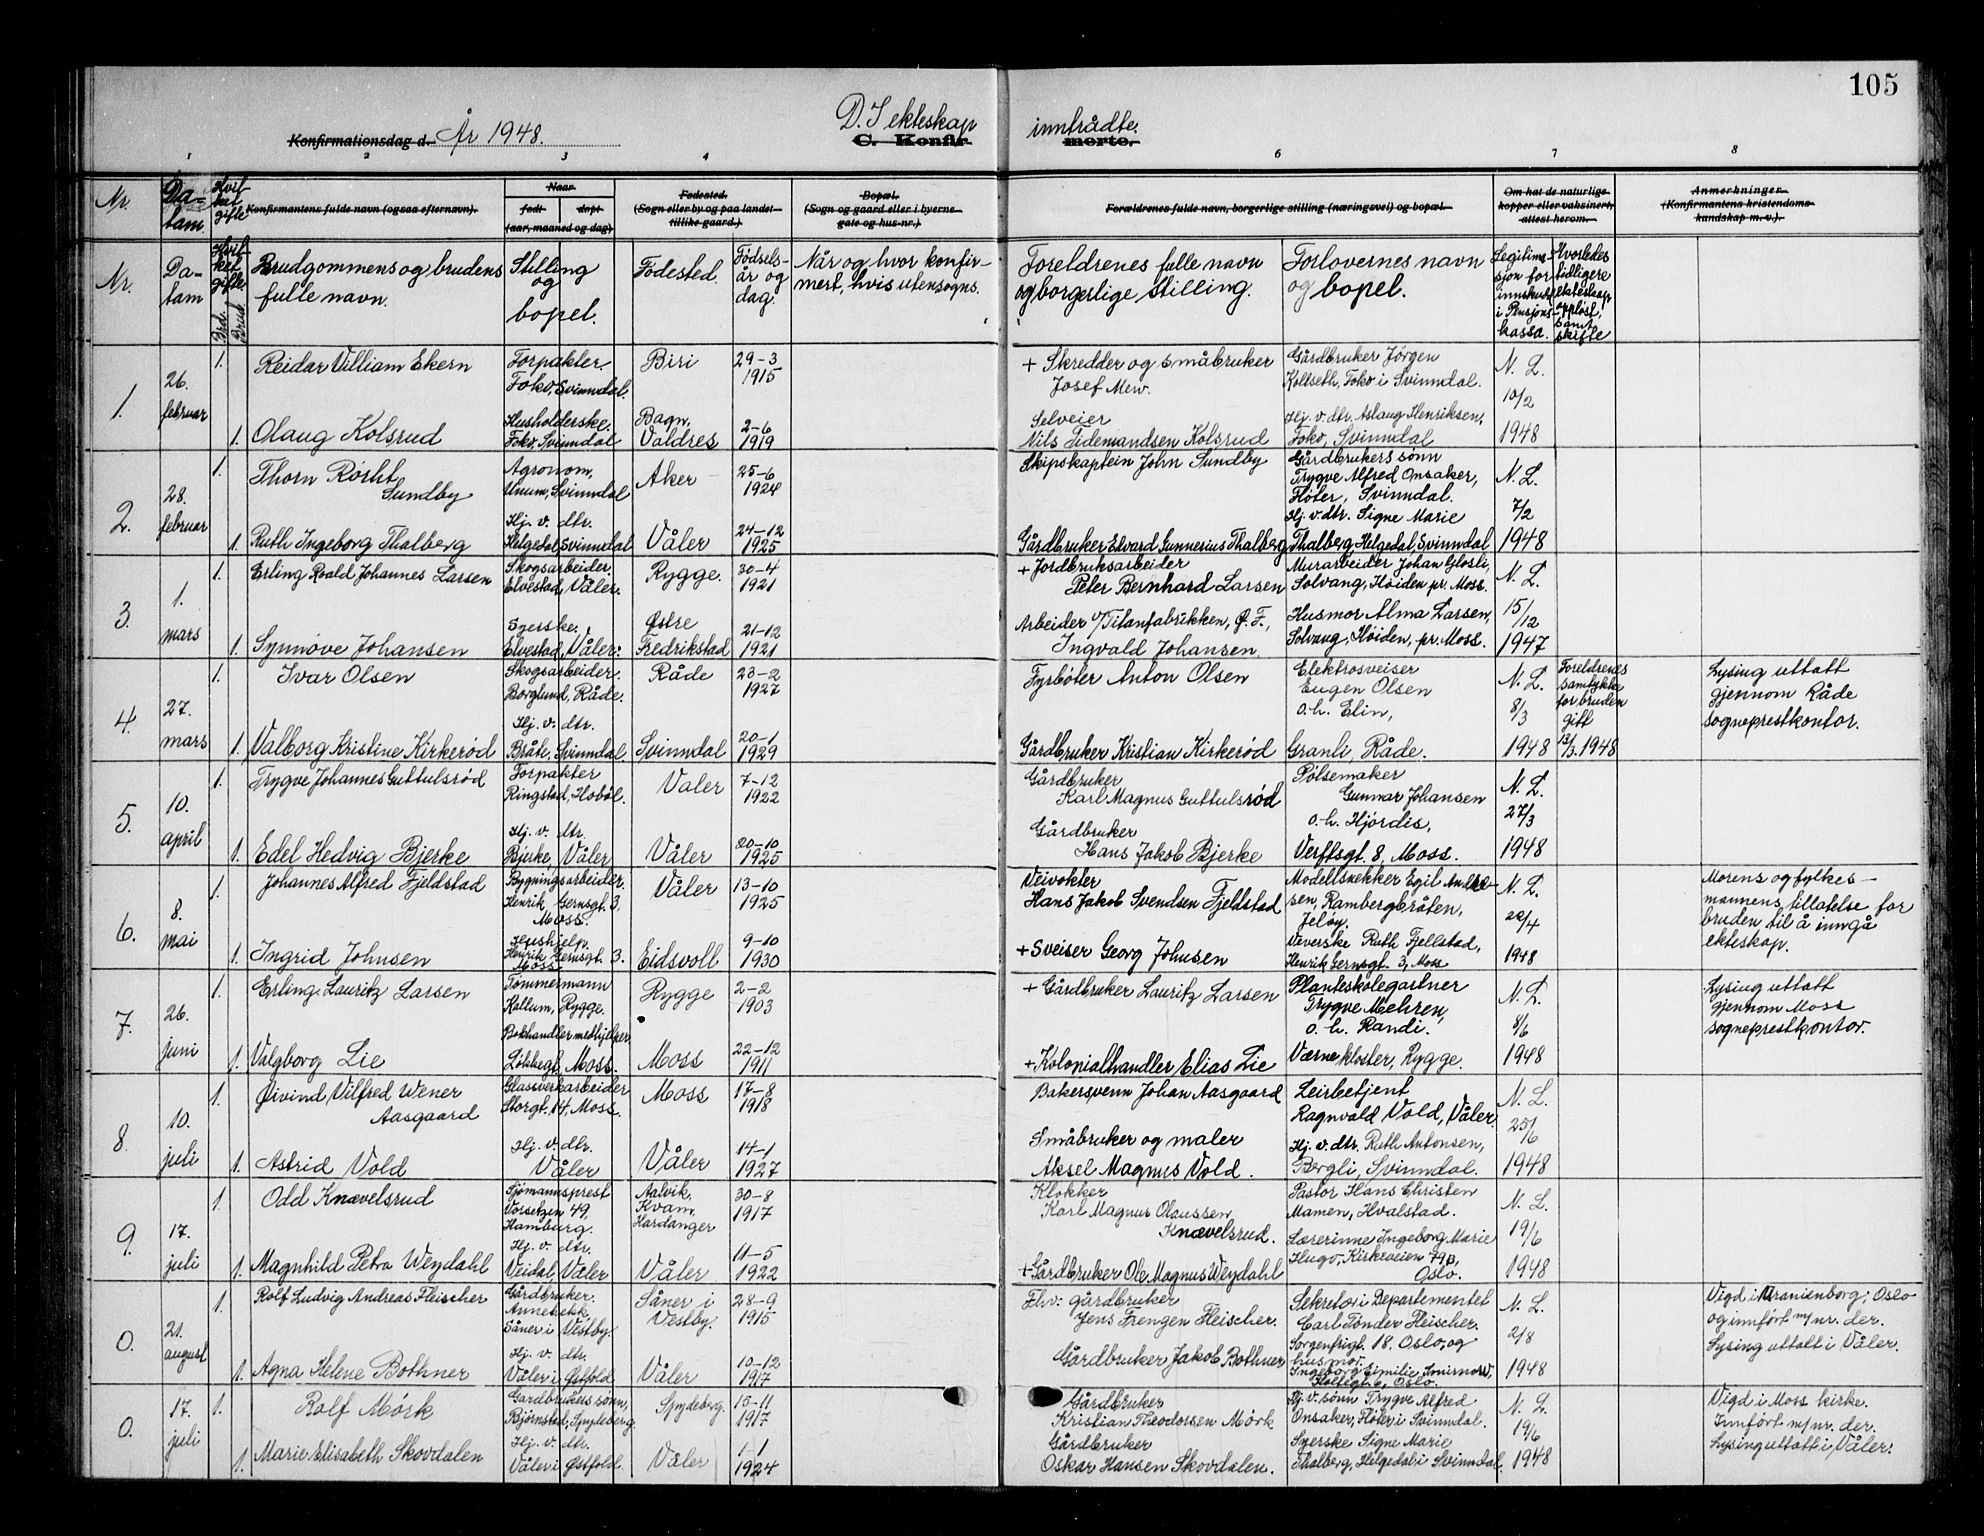 105
Konfirmationsdag d. År 1948.
D. I ekteskap inntrådte.
C. Konfirmerte.
1 2 3 4 6 7 8
Nr. Datum Hvilket gifte Konfirmantens fulde navn (ogsaa efternavn). Naar født døpt (aar, maaned og dag) Fødested. (Sogn eller by og paa landet tillike gaard.) Bopæl. (Sogn og gaard eller i byerne gate og hus-nr.) Forældrenes fulde navn, borgerlige stilling (næringsvei) og bopæl. Om hat de naturlige kopper eller vaksinert, attest herom. Anmerkninger. (Konfirmantens kristendomskundskap m. v.)
Nr. Datum Hvilket gifte Brd. Brud. Brudgommens og brudens fulle navn. Stilling og bopel. Fødested. Fødselsår og dag. Når og hvor konfirmert, hvis utensogns. Foreldrenes fulle navn og borgerlige stilling. Forlovernes navn og bopel. Legitimasjon for innskudd i Pensjonskassa. Hvorledes tidligere ekteskap oppløst, samt skifte
1. 26. februar
1. Reidar Villiam Ekern Forpakter Foko, Svinndal. Biri 29-3 1915 + Skredder og småbruker Josef Mew. Gårdbruker Jørgen Koltseth, Foko i Svinndal. N. L. 10/2 1948
1. Olaug Kolsrud Husholderske. Foko, Svinndal Bagn, Valdres 2-6 1919 Selveier Nils Tidemandsen Kolsrud Hj. v. dtr. Aslaug Henriksen, Foko, Svinndal
2. 28. februar
1. Thorn Røsht Sundby Agronom, Unum, Svinndal Aker 25-6 1924 Skipskaptein John Sundby Gårdbrukers sønn Trygve Alfred Onsaker, Fløter, Svinndal. N. L. 7/2 1948
1. Ruth Ingeborg Thalberg Hj. v. dtr. Helgedal, Svinndal Våler 24-12 1925 Gårdbruker Edvard Gunnerius Thalberg Hj. v. dtr. Signe Marie Thalberg, Helgedal, Svinndal
3. 1. mars
1. Erling Roald Johannes Larsen Skogsarbeider, Elvestad, Våler. Rygge. 30-4 1921 + Jordbruksarbeider Peter Bernhard Larsen Murarbeider Johan Glosli, Solvang, Høiden pr. Moss. N. L. 15/12 1947
1. Synnøve Johansen Syerske, Elvestad, Våler. Østre Fredrikstad 21-12 1921 Arbeider v/Titanfabrikken, Ø. F., Ingvald Johansen. Husmor Alma Larsen, Solvang, Høiden, pr. Moss.
4. 27. mars
1. Ivar Olsen Skogsarbeider. Borglund, Råde. Råde 23-2 1927 Fyrbøter Anton Olsen Elektrosveiser Eugen Olsen o. h. Elin, N. L. 8/3 1948 Foreldrenes samtykke for bruden gitt 13/3. 1948 Lysing uttatt gjennom Råde sogneprestkontor.
1. Valborg Kristine Kirkerød Hj. v. dtr. Bråte, Svinndal. Svinndal 20-1 1929 Gårdbruker Kristian Kirkerød Granli, Råde.
5. 10. april
1. Trygve Johannes Guttulsrød Forpakter Ringstad, Hobøl. Våler 7-12 1922 Gårdbruker Karl Magnus Guttulsrød Pølsemaker Gunnar Johansen o. h. Hjørdis, N. L. 27/3 1948
1. Edel Hedvig Bjerke Hj. v. dtr. Bjerke, Våler Våler 20-10 1925 Gårdbruker Hans Jakob Bjerke Verftsgt. 8, Moss.
6. 8. mai
1. Johannes Alfred Fjeldstad Bygningsarbeider. Henrik Gernsgt. 3, Moss. Våler 13-10 1925 Veivokter Hans Jakob Svendsen Fjeldstad Modellsnekker Egil Andresen, Rambergbråten, Jeløy. N. L. 22/4 1948 Morens og fylkesmannens tillatelse for bruden til å inngå ekteskap.
1. Ingrid Johnsen Hushjelp. Henrik Gernsgt. 3. Moss Eidsvoll 9-10 1930 + Sveiser Georg Johnsen Veverske Ruth Fjellstad, Henrik Gernsgt. 3, Moss
7. 26. juni
1. Erling Lauritz Larsen Tømmermann Kallum, Rygge. Rygge 2-2 1903 + Gårdbruker Lauritz Larsen Planteskolegartner Trygve Mehren, o. h. Randi. N. L. 8/6 1948 Lysing uttatt gjennom Moss sogneprestkontor.
1. Valgborg Lie Bokhandlermedhjelper Moss. Moss 22-12 1911 + Kolonialhandler Elias Lie Værne kloster, Rygge.
8. 10. juli
1. Øivind Vilfred Wener Aasgaard Glassverkarbeider Storgt. 14, Moss. Moss 17-8 1918 Bakersvenn Johan Aasgaard Leirbetjent Ragnvald Vold, Våler. N. L. 25/6 1948
1. Astrid Vold Hj. v. dtr. Våler Våler 14-1 1927 Småbruker og maler Aksel Magnus Vold. Hj. v. dtr Ruth Antonsen, Bergli, Svinndal.
9. 17. juli
1. Odd Knævelsrud Sjømannsprest Vorsetzen 49. Hamburg. Aalvik, Kvam, Hardanger 30-8 1917 Klokker Karl Magnus Olaussen Knævelsrud. Pastor Hans Christen Mamen, Hvalstad. N. L. 19/6 1948
1. Magnhild Petra Weydahl Hj. v. dtr. Veidal, Våler Våler 11-5 1922 + Gårdbruker Ole Magnus Weydahl Lærerinne Ingeborg Marie Hugo, Kirkeveien 79B, Oslo.
0. 21. august
1. Rolf Ludvig Andreas Fleischer Gårdbruker. Annebekk Såner i Vestby. Såner i Vestby. 28-9 1915 Fhv. gårdbruker Jens Frengen Fleischer. Sekretær i Departementet Carl Tønder Fleischer. Sorgenfrigt. 18, Oslo, og N. L. 2/8 1948 Vigd i Uranienborg, Oslo og innført m/nr. der. Lysing uttatt i Våler.
1. Agna Helene Bothner Hj. v. dtr. Våler i Østfold Våler 10-12 1917 Gårdbruker Jakob Bothner husmor Ingeborg Eimilie Smirnow, Holtegt. 6, Oslo.
0. 17. juli
1. Rolf Mørk Gårdbrukers sønn, Bjørnstad, Spydeberg. Spydeberg. 15-11 1917 Gårdbruker Kristian Theodorsen Mørk Hj. v. sønn Trygve Alfred Onsaker, Fløter i Svinndal. N. L. 19/6 1948 Vigd i Moss kirke. Innført m/nr. der. Lysing uttatt i Våler.
1. Marie Elisabeth Skovdalen Hj. v. dtr. Våler i Østfold. Våler 1-1 1924 Gårdbruker Oskar Hansen Skovdalen. Syerske Signe Marie Thalberg, Helgedal i Svinndal.